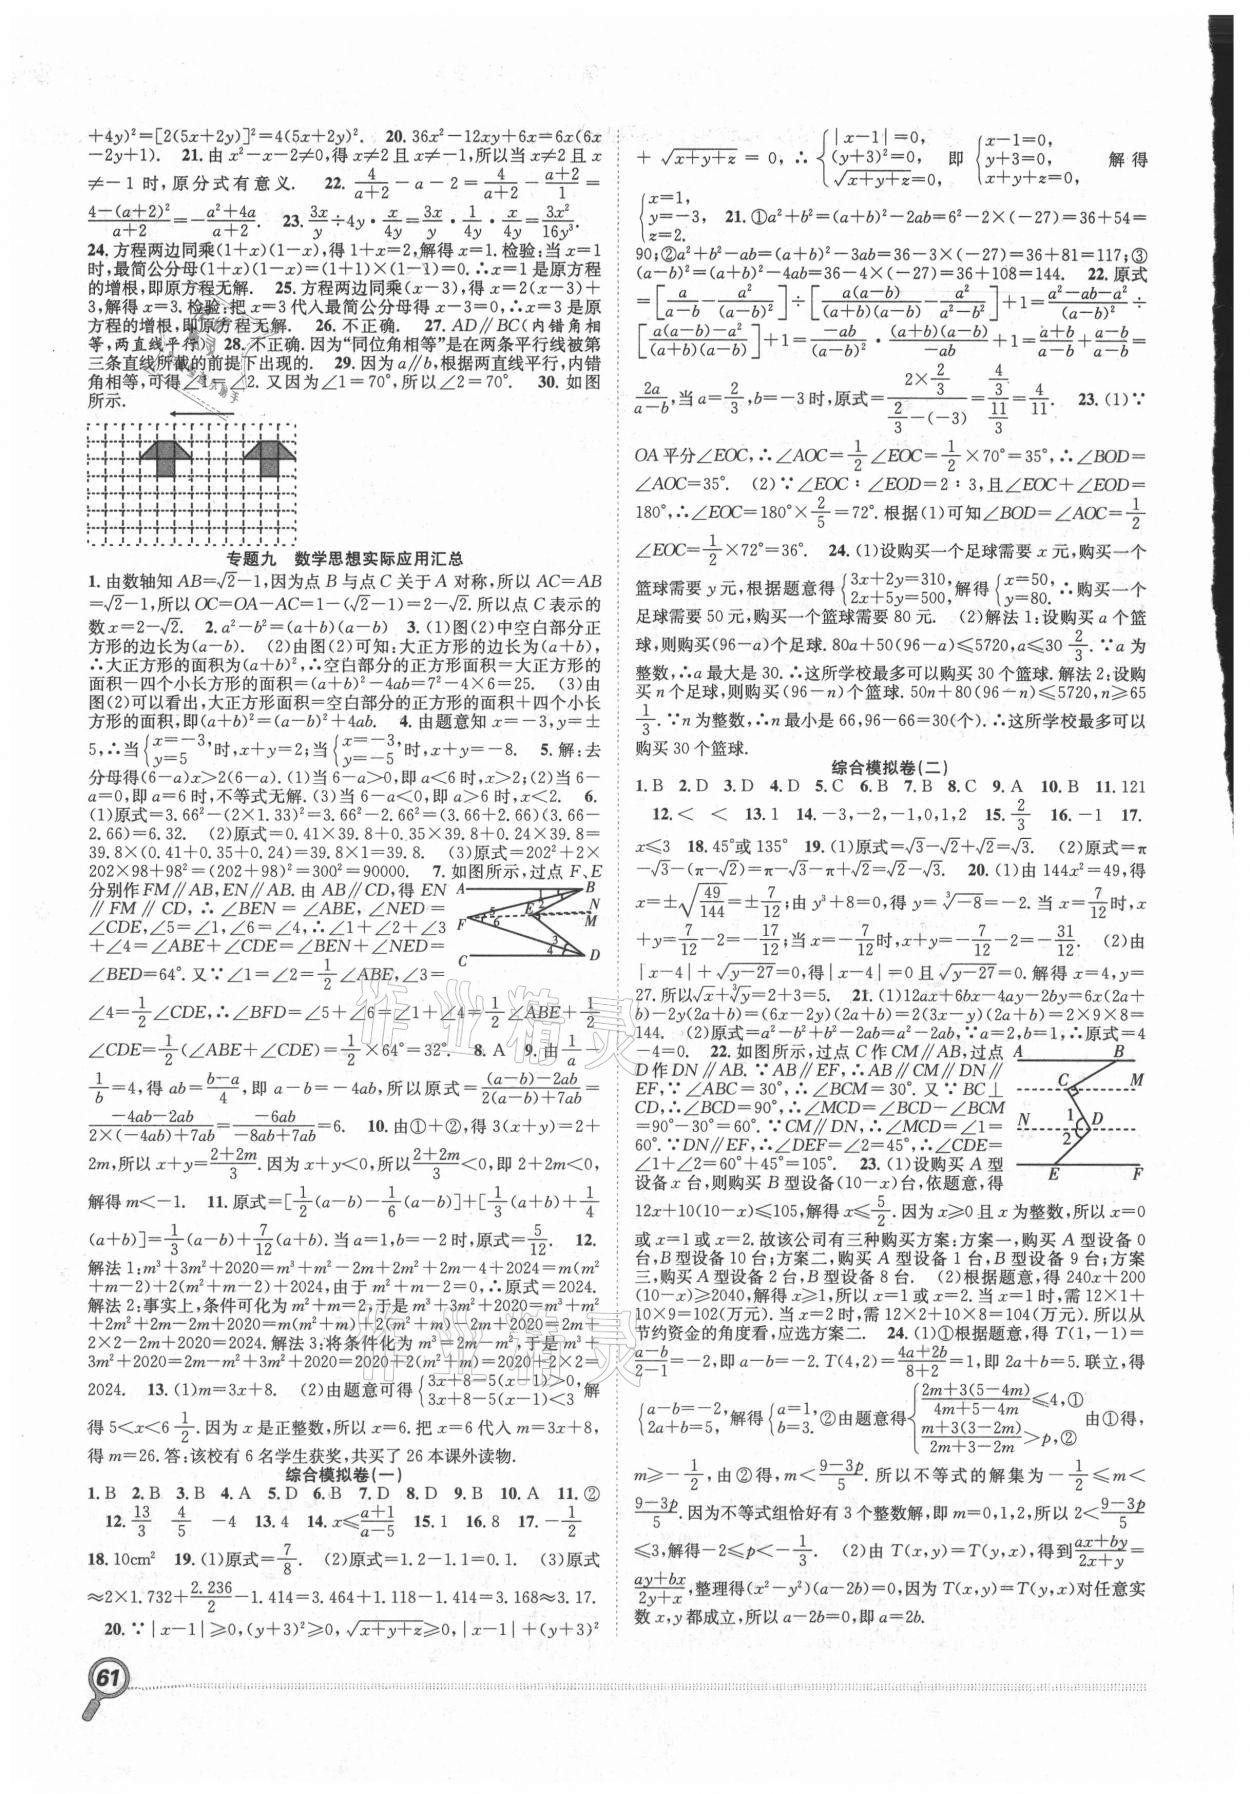 +4y)²=[2(5x+2y)]²=4(5x+2y)². 20. 36x²-12xy+6x=6x(6x
-2y+1). 21. 由 x²-x-2≠0,得 x≠2 且 x≠-1,所以当 x≠2 且 x
≠-1 时,原分式有意义. 22. 4/(a+2)-a-2=4/(a+2)-(a+2)/1=
(4-(a+2)²)/(a+2)=-(a²+4a)/(a+2). 23. 3x/y÷4y·x/4y=3x/y·1/4y·x/4y=3x²/16y³.
24. 方程两边同乘(1+x)(1-x),得 1+x=2,解得 x=1. 检验:当 x=1
时,最简公分母(1+x)(1-x)=(1+1)×(1-1)=0. ∴x=1 是原方程
的增根,即原方程无解. 25. 方程两边同乘(x-3),得 x=2(x-3)+
3,解得 x=3. 检验:把 x=3 代入最简公分母得 x-3=0,∴x=3 是原
方程的增根,即原方程无解. 26. 不正确. 27. AD∥BC(内错角相
等,两直线平行) 28. 不正确. 因为“同位角相等”是在两条平行线被第
三条直线所截的前提下出现的. 29. 因为 a∥b,根据两直线平行,内错
角相等,可得∠1=∠2. 又因为∠1=70°,所以∠2=70°. 30. 如图
所示.
专题九 数学思想实际应用汇总
1. 由数轴知 AB=√2-1,因为点 B 与点 C 关于 A 对称,所以 AC=AB
=√2-1,所以 OC=OA-AC=1-(√2-1)=2-√2. 所以点 C 表示的
数 x=2-√2. 2. a²-b²=(a+b)(a-b) 3. (1)图(2)中空白部分正
方形的边长为(a-b). (2)由图(2)可知:大正方形的边长为(a+b),
∴大正方形的面积为(a+b)²,∴空白部分的正方形面积=大正方形的
面积-四个小长方形的面积=(a+b)²-4ab=7²-4×6=25. (3)由
图(2)可以看出,大正方形面积=空白部分的正方形的面积+四个小长
方形的面积,即(a+b)²=(a-b)²+4ab. 4. 由题意知 x=-3,y=±
5,∴当{x=-3, y=5 时,x+y=2;当{x=-3, y=-5 时,x+y=-8. 5. 解:去
分母得(6-a)x>2(6-a). (1)当 6-a>0,即 a<6 时,x>2. (2)当 6-
a=0,即 a=6 时,不等式无解. (3)当 6-a<0,即 a>6 时,x<2. 6.
(1)原式=3.66²-(2×1.33)²=3.66²-2.66²=(3.66+2.66)(3.66-
2.66)=6.32. (2)原式=0.41×39.8+0.35×39.8+0.24×39.8=
39.8×(0.41+0.35+0.24)=39.8×1=39.8. (3)原式=202²+2×
202×98+98²=(202+98)²=300²=90000. 7. 如图所示,过点 F、E
分别作 FM∥AB,EN∥AB. 由 AB∥CD,得 EN
∥FM∥CD,∴∠BEN=∠ABE,∠NED=
∠CDE,∠5=∠1,∠6=∠4,∴∠1+∠2+∠3
+∠4=∠ABE+∠CDE=∠BEN+∠NED=
∠BED=64°. 又∵∠1=∠2=1/2∠ABE,∠3=
A B 1 2 E N F 5 6 M 3 4 C D
∠4=1/2∠CDE,∴∠BFD=∠5+∠6=∠1+∠4=1/2∠ABE+1/2
∠CDE=1/2(∠ABE+∠CDE)=1/2×64°=32°. 8. A 9. 由1/a-
1/b=4,得 ab=(b-a)/4,即 a-b=-4ab,所以原式=((a-b)-2ab)/(2(a-b)+7ab)=
(-4ab-2ab)/(2×(-4ab)+7ab)=-6ab/(-8ab+7ab)=6. 10. 由①+②,得 3(x+y)=2+
2m,所以 x+y=(2+2m)/3. 因为 x+y<0,所以(2+2m)/3<0,即 2+2m<0,
解得 m<-1. 11. 原式=[1/2(a-b)-1/6(a-b)]+[1/3(a+b)+1/4
(a+b)]=1/3(a-b)+7/12(a+b). 当 a=1,b=-2 时,原式=5/12. 12.
解法 1:m³+3m²+2020=m³+m²-2m+2m²+2m-4+2024=m(m²
+m-2)+2(m²+m-2)+2024,由于 m²+m-2=0,∴原式=2024.
解法 2:事实上,条件可化为 m²+m=2,于是 m³+3m²+2020=m³+m²
+2m²+2m-2m+2020=m(m²+m)+2(m²+m)-2m+2020=m×
2+2×2-2m+2020=2024. 解法 3:将条件化为 m³=2m-m²,于是 m³+
3m²+2020=2m-m²+3m²+2020=2020+2(m²+m)=2020+2×2=
2024. 13. (1)m=3x+8. (2)由题意可得{3x+8-5(x-1)>0, 3x+8-5(x-1)<3 解
得 5<x<6 1/2. 因为 x 是正整数,所以 x=6. 把 x=6 代入 m=3x+8,
得 m=26. 答:该校有 6 名学生获奖,共买了 26 本课外读物.
综合模拟卷(一)
1. B 2. B 3. B 4. A 5. D 6. B 7. D 8. D 9. B 10. A 11. ②
12. 13/3 4/5 -4 13. 4 14. x≤(a+1)/(a-5) 15. 1 16. 8 17. -1/2
18. 10cm² 19. (1)原式=7/8. (2)原式=1.2-1.1=0.1. (3)原式
≈2×1.732+2.236/2-1.414=3.464+1.118-1.414=3.168≈3.17.
20. ∵|x-1|≥0,(y+3)²≥0,√(x+y+z)≥0,|x-1|+(y+3)²
+√(x+y+z)=0,∴{|x-1|=0, (y+3)²=0, √(x+y+z)=0, 即{x-1=0, y+3=0, x+y+z=0, 解得
{x=1, y=-3, z=2. 21. ①a²+b²=(a+b)²-2ab=6²-2×(-27)=36+54=
90;②a²+b²-ab=(a+b)²-3ab=36-3×(-27)=36+81=117;③
(a-b)²=(a+b)²-4ab=36-4×(-27)=36+108=144. 22. 原式
=[a/(a-b)-a²/(a-b)²]÷[a(a-b)/((a+b)(a-b))-a²/(a²-b²)]+1=(a²-ab-a²)/(a-b)²÷
[(a(a-b)-a²)/((a+b)(a-b))]+1=-ab/(a-b)²·(a+b)(a-b)/(-ab)+1=(a+b)/(a-b)+(a-b)/(a-b)=
2a/(a-b),当 a=2/3,b=-3 时,原式=(2×2/3)/(2/3-(-3))=(4/3)/(11/3)=4/11. 23. (1)∵
OA 平分∠EOC,∴∠AOC=1/2∠EOC=1/2×70°=35°,∴∠BOD=
∠AOC=35°. (2)∵∠EOC∶∠EOD=2∶3,且∠EOC+∠EOD=
180°,∴∠EOC=180°×2/5=72°. 根据(1)可知∠BOD=∠AOC=1/2
∠EOC=1/2×72°=36°. 24. (1)设购买一个足球需要 x 元,购买一个
篮球需要 y 元,根据题意得{3x+2y=310, 2x+5y=500, 解得{x=50, y=80. ∴购买一个
足球需要 50 元,购买一个篮球需要 80 元. (2)解法 1:设购买 a 个篮
球,则购买(96-a)个足球. 80a+50(96-a)≤5720,a≤30 2/3. ∵a 为
整数,∴a 最大是 30. ∴这所学校最多可以购买 30 个篮球. 解法 2;设购
买 n 个足球,则购买(96-n)个篮球. 50n+80(96-n)≤5720,n≥65
1/3. ∵n 为整数,∴n 最小是 66,96-66=30(个). ∴这所学校最多可以
购买 30 个篮球.
综合模拟卷(二)
1. B 2. D 3. D 4. D 5. C 6. B 7. B 8. C 9. A 10. B 11. 121
12. < < 13. 1 14. -3,-2,-1,0,1,2 15. 2/3 16. -1 17.
x≤3 18. 45°或 135° 19. (1)原式=√3-√2+√2=√3. (2)原式=π
-√3-(π-√2)=π-√3-π+√2=√2-√3. 20. (1)由 144x²=49,得
x=±√(49/144)=±7/12;由 y³+8=0,得 y=∛-8=-2. 当 x=7/12时,x+
y=7/12-2=-17/12;当 x=-7/12时,x+y=-7/12-2=-31/12. (2)由
|x-4|+√(y-27)=0,得|x-4|=0 且√(y-27)=0. 解得 x=4,y=
27. 所以√x+∛y=2+3=5. 21. (1)12ax+6bx-4ay-2by=6x(2a+
b)-2y(2a+b)=(6x-2y)(2a+b)=2(3x-y)(2a+b)=2×9×8=
144. (2)原式=a²-b²+b²-2ab=a²-2ab,∵a=2,b=1,∴原式=4
-4=0. 22. 如图所示,过点 C 作 CM∥AB,过点
D 作 DN∥AB. ∵AB∥EF,∴AB∥CM∥DN∥
EF,∵∠ABC=30°,∴∠BCM=30°. 又∵BC⊥
CD,∴∠BCD=90°,∴∠MCD=∠BCD-∠BCM
=90°-30°=60°. ∵CM∥DN,∴∠MCD=∠1=
60°. ∵DN∥EF,∴∠DEF=∠2=45°,∴∠CDE=
∠1+∠2=60°+45°=105°. 23. (1)设购买 A 型
设备 x 台,则购买 B 型设备(10-x)台,依题意,得
A B C M N 1 D 2 E F
12x+10(10-x)≤105,解得 x≤5/2. 因为 x≥0 且 x 为整数,所以 x=0
或 x=1 或 x=2. 故该公司有三种购买方案:方案一,购买 A 型设备 0
台,B 型设备 10 台;方案二,购买 A 型设备 1 台,B 型设备 9 台;方案
三,购买 A 型设备 2 台,B 型设备 8 台. (2)根据题意,得 240x+200
(10-x)≥2040,解得 x≥1,所以 x=1 或 x=2. 当 x=1 时,需 12×1+
10×9=102(万元). 当 x=2 时,需 12×2+10×8=104(万元). 所以从
节约资金的角度看,应选方案二. 24. (1)①根据题意,得 T(1,-1)=
(a-b)/(2-1)=-2,即 a-b=-2. T(4,2)=(4a+2b)/(8+2)=1,即 2a+b=5. 联立,得
{a-b=-2, 2a+b=5, 解得{a=1, b=3, ②由题意得{(2m+3(5-4m))/(4m+5-4m)≤4,① (m+3(3-2m))/(2m+3-2m)>p,② 由①得,
m≥-1/2,由②得,m<(9-3p)/5. 所以不等式的解集为-1/2≤m<
(9-3p)/5. 因为不等式组恰好有 3 个整数解,即 m=0,1,2,所以 2<(9-3p)/5
≤3,解得-2≤p<-1/3. (2)由 T(x,y)=T(y,x),得到(ax+by)/(2x+y)=
(ay+bx)/(2y+x),整理得(x²-y²)(a-2b)=0,因为 T(x,y)=T(y,x)对任意实
数 x,y 都成立,所以 a-2b=0,即 a=2b.
61
作业精灵
作业精灵